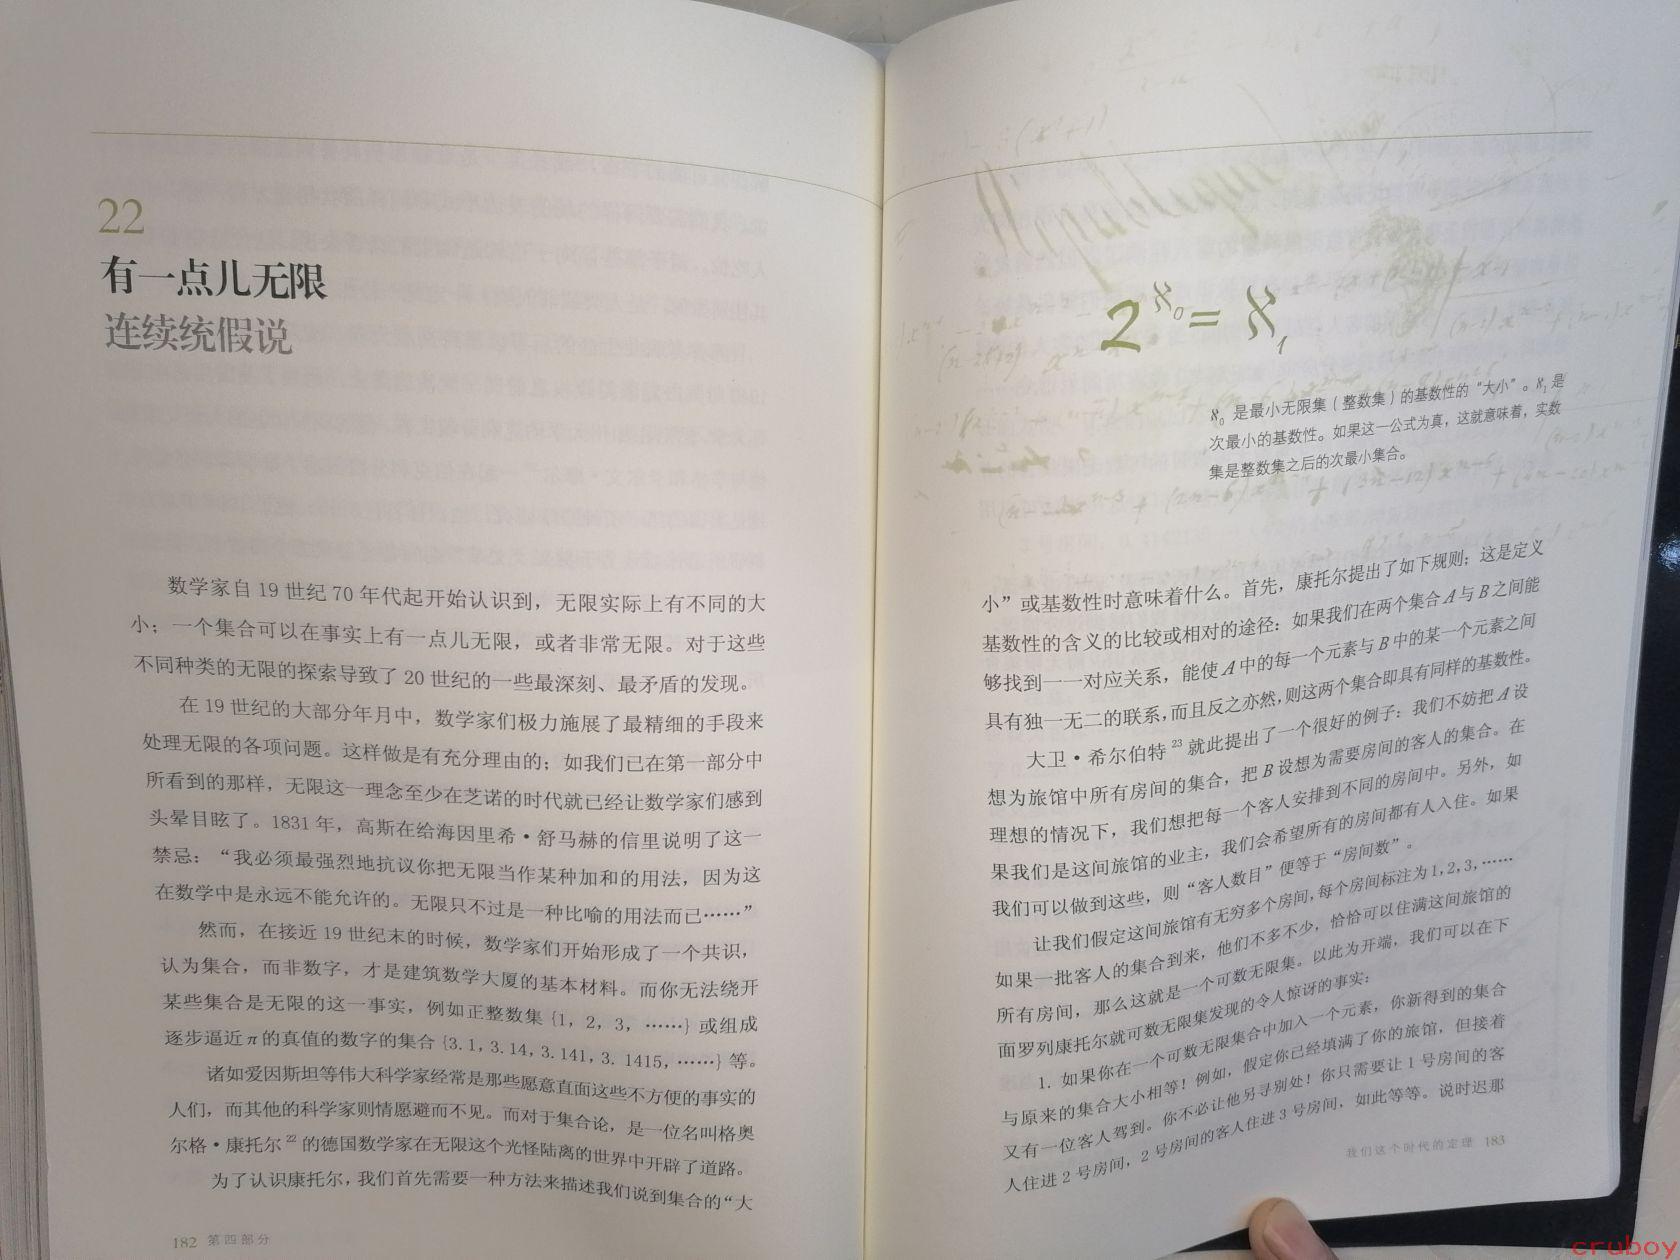 22
有一点儿无限
连续统假说
数学家自 19 世纪 70 年代起开始认识到，无限实际上有不同的大
小；一个集合可以在事实上有一点儿无限，或者非常无限。对于这些
不同种类的无限的探索导致了 20 世纪的一些最深刻、最矛盾的发现。
在 19 世纪的大部分年月中，数学家们极力施展了最精细的手段来
处理无限的各项问题。这样做是有充分理由的；如我们已在第一部分中
所看到的那样，无限这一理念至少在芝诺的时代就已经让数学家们感到
头晕目眩了。1831 年，高斯在给海因里希·舒马赫的信里说明了这一
禁忌：“我必须最强烈地抗议你把无限当作某种加和的用法，因为这
在数学中是永远不能允许的。无限只不过是一种比喻的用法而已……”
然而，在接近 19 世纪末的时候，数学家们开始形成了一个共识，
认为集合，而非数字，才是建筑数学大厦的基本材料。而你无法绕开
某些集合是无限的这一事实，例如正整数集 {1, 2, 3, ……} 或组成
逐步逼近 π 的真值的数字的集合 {3.1, 3.14, 3.141, 3.1415, ……} 等。
诸如爱因斯坦等伟大科学家经常是那些愿意直面这些不方便的事实的
人们，而其他的科学家则情愿避而不见。而对于集合论，是一位名叫格奥
尔格·康托尔22 的德国数学家在无限这个光怪陆离的世界中开辟了道路。
为了认识康托尔，我们首先需要一种方法来描述我们说到集合的“大
182 第四部分
2^ℵ₀ = ℵ₁
ℵ₀ 是最小无限集（整数集）的基数性的“大小”。ℵ₁ 是
次最小的基数性。如果这一公式为真，这就意味着，实数
集是整数集之后的次最小集合。
小”或基数性时意味着什么。首先，康托尔提出了如下规则；这是定义
基数性的含义的比较或相对的途径：如果我们在两个集合 A 与 B 之间能
够找到一一对应关系，能使 A 中的每一个元素与 B 中的某一个元素之间
具有独一无二的联系，而且反之亦然，则这两个集合即具有同样的基数性。
大卫·希尔伯特23 就此提出了一个很好的例子：我们不妨把 A 设
想为旅馆中所有房间的集合，把 B 设想为需要房间的客人的集合。在
理想的情况下，我们想把每一个客人安排到不同的房间中。另外，如
果我们是这间旅馆的业主，我们会希望所有的房间都有人入住。如果
我们可以做到这些，则“客人数目”便等于“房间数”。
让我们假定这间旅馆有无穷多个房间，每个房间标注为1, 2, 3, ……
如果一批客人的集合到来，他们不多不少，恰恰可以住满这间旅馆的
所有房间，那么这就是一个可数无限集。以此为开端，我们可以在下
面罗列康托尔就可数无限集发现的令人惊讶的事实：
1. 如果你在一个可数无限集合中加入一个元素，你新得到的集合
与原来的集合大小相等！例如，假定你已经填满了你的旅馆，但接着
又有一位客人驾到。你不必让他另寻别处！你只需要让 1 号房间的客
人住进 2 号房间，2 号房间的客人住进 3 号房间，如此等等。说时迟那
我们这个时代的定理 183
cruboy